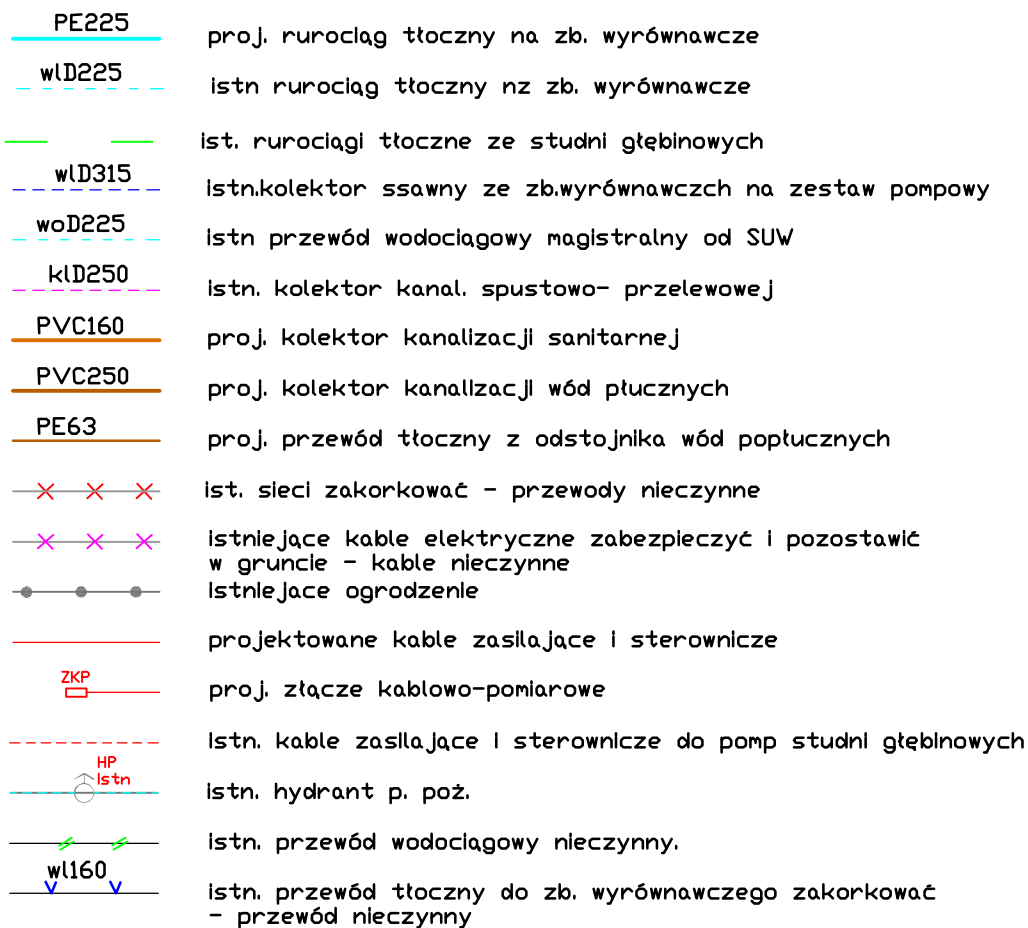 PE225
proj. rurociąg tłoczny na zb. wyrównawcze
wlD225
istn rurociąg tłoczny nz zb. wyrównawcze
ist. rurociągi tłoczne ze studni głębinowych
wlD315
istn.kolektor ssawny ze zb.wyrównawczch na zestaw pompowy
woD225
istn przewód wodociągowy magistralny od SUW
klD250
istn. kolektor kanal. spustowo- przelewowej
PVC160
proj. kolektor kanalizacji sanitarnej
PVC250
proj. kolektor kanalizacji wód płucznych
PE63
proj. przewód tłoczny z odstojnika wód popłucznych
ist. sieci zakorkować - przewody nieczynne
istniejące kable elektryczne zabezpieczyć i pozostawić
w gruncie - kable nieczynne
istniejace ogrodzenie
projektowane kable zasilające i sterownicze
ZKP
proj. złącze kablowo-pomiarowe
istn. kable zasilające i sterownicze do pomp studni głębinowych
HP
istn
istn. hydrant p. poż.
istn. przewód wodociągowy nieczynny.
wl160
istn. przewód tłoczny do zb. wyrównawczego zakorkować
- przewód nieczynny